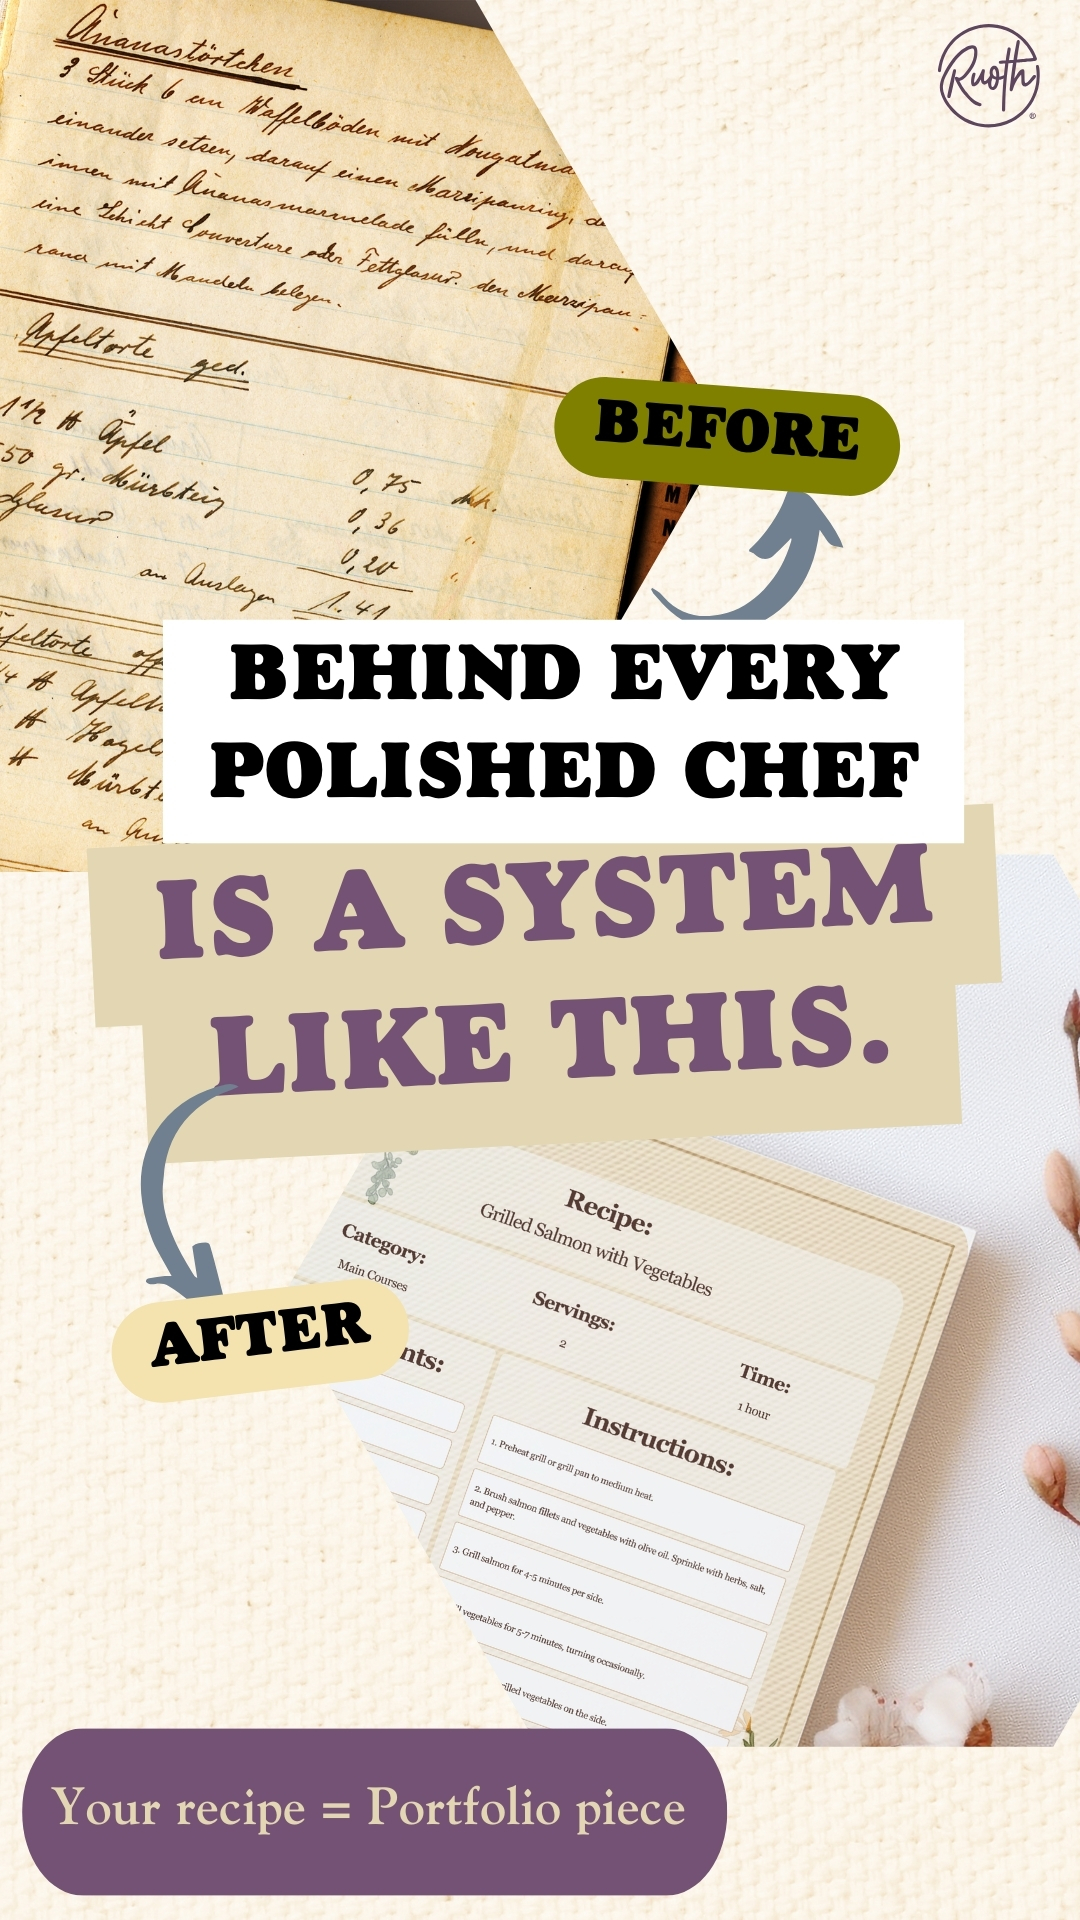 Ruoth
®
Ananastörtchen
3 Stück 6 cm Waffelböden mit Nougatma
einander setzen, darauf einen Marzipanring, de
innen mit Ananasmarmelade füllen, und darauf
eine Schicht Couverture oder Fettglasur. den Marzipan-
rand mit Mandeln belegen.
Apfeltorte ged.
1 1/2 ℔ Äpfel 0,75 Mk.
50 gr. Mürbteig 0,36 "
glasur 0,20 "
an Auslagen 1.41
BEFORE
M
N
BEHIND EVERY
POLISHED CHEF
IS A SYSTEM
LIKE THIS.
AFTER
Recipe:
Grilled Salmon with Vegetables
Category:
Main Courses
Servings:
2
Time:
1 hour
nts:
Instructions:
1. Preheat grill or grill pan to medium heat.
2. Brush salmon fillets and vegetables with olive oil. Sprinkle with herbs, salt,
and pepper.
3. Grill salmon for 4-5 minutes per side.
vegetables for 5-7 minutes, turning occasionally.
illed vegetables on the side.
Your recipe = Portfolio piece